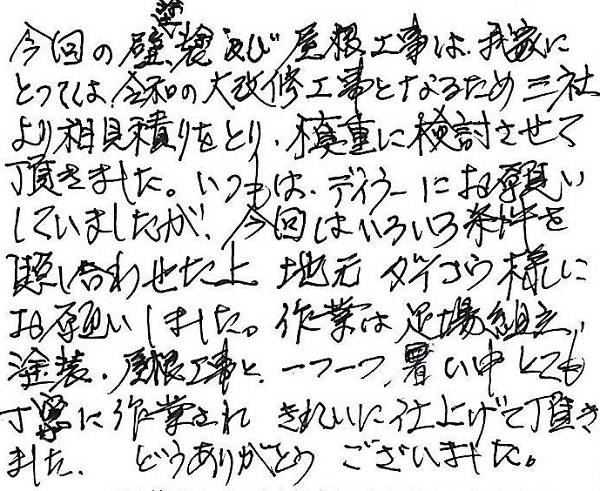 今回の壁塗及び屋根工事は、我家に
とっては令和の大改修工事となるため三社
より相見積りをとり、慎重に検討させて
頂きました。いつもは、ディラーにお願い
していましたが、今回はいろいろ条件を
照し合わせた上 地元 ダイコウ様に
お願いしました。作業は足場組立、
塗装、屋根工事と、一つ一つ、暑い中とても
丁寧に作業され きれいに仕上げて頂き
ました。 どうありがとうございました。